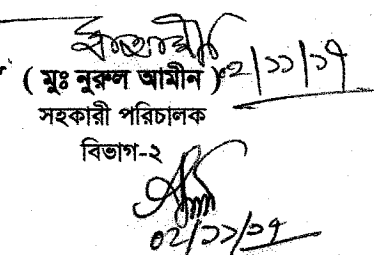 ( মুঃ নুরুল আমীন ) ০২/১১/১৭
সহকারী পরিচালক
বিভাগ-২
০২/১১/১৭